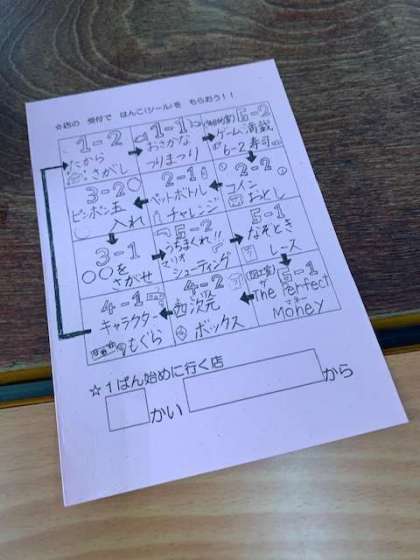 ☆店の 受付で はんこ(シール)を もらおう!!
1-2
たから
さがし
1-1
おさかな
つりまつり
6-2
ゲーム満載
6-2寿司
3-2
ピンポン玉
入れ
2-1
ペットボトル
チャレンジ
2-2
コイン
おとし
3-1
〇〇を
さがせ
5-2
うちまくれ!!
マリオ
シューティング
5-1
なぞとき
レース
4-1
キャラクター
もぐら
4-2
四次元
ボックス
6-1
The Perfect
Money
☆1ばん始めに行く店
かい
から